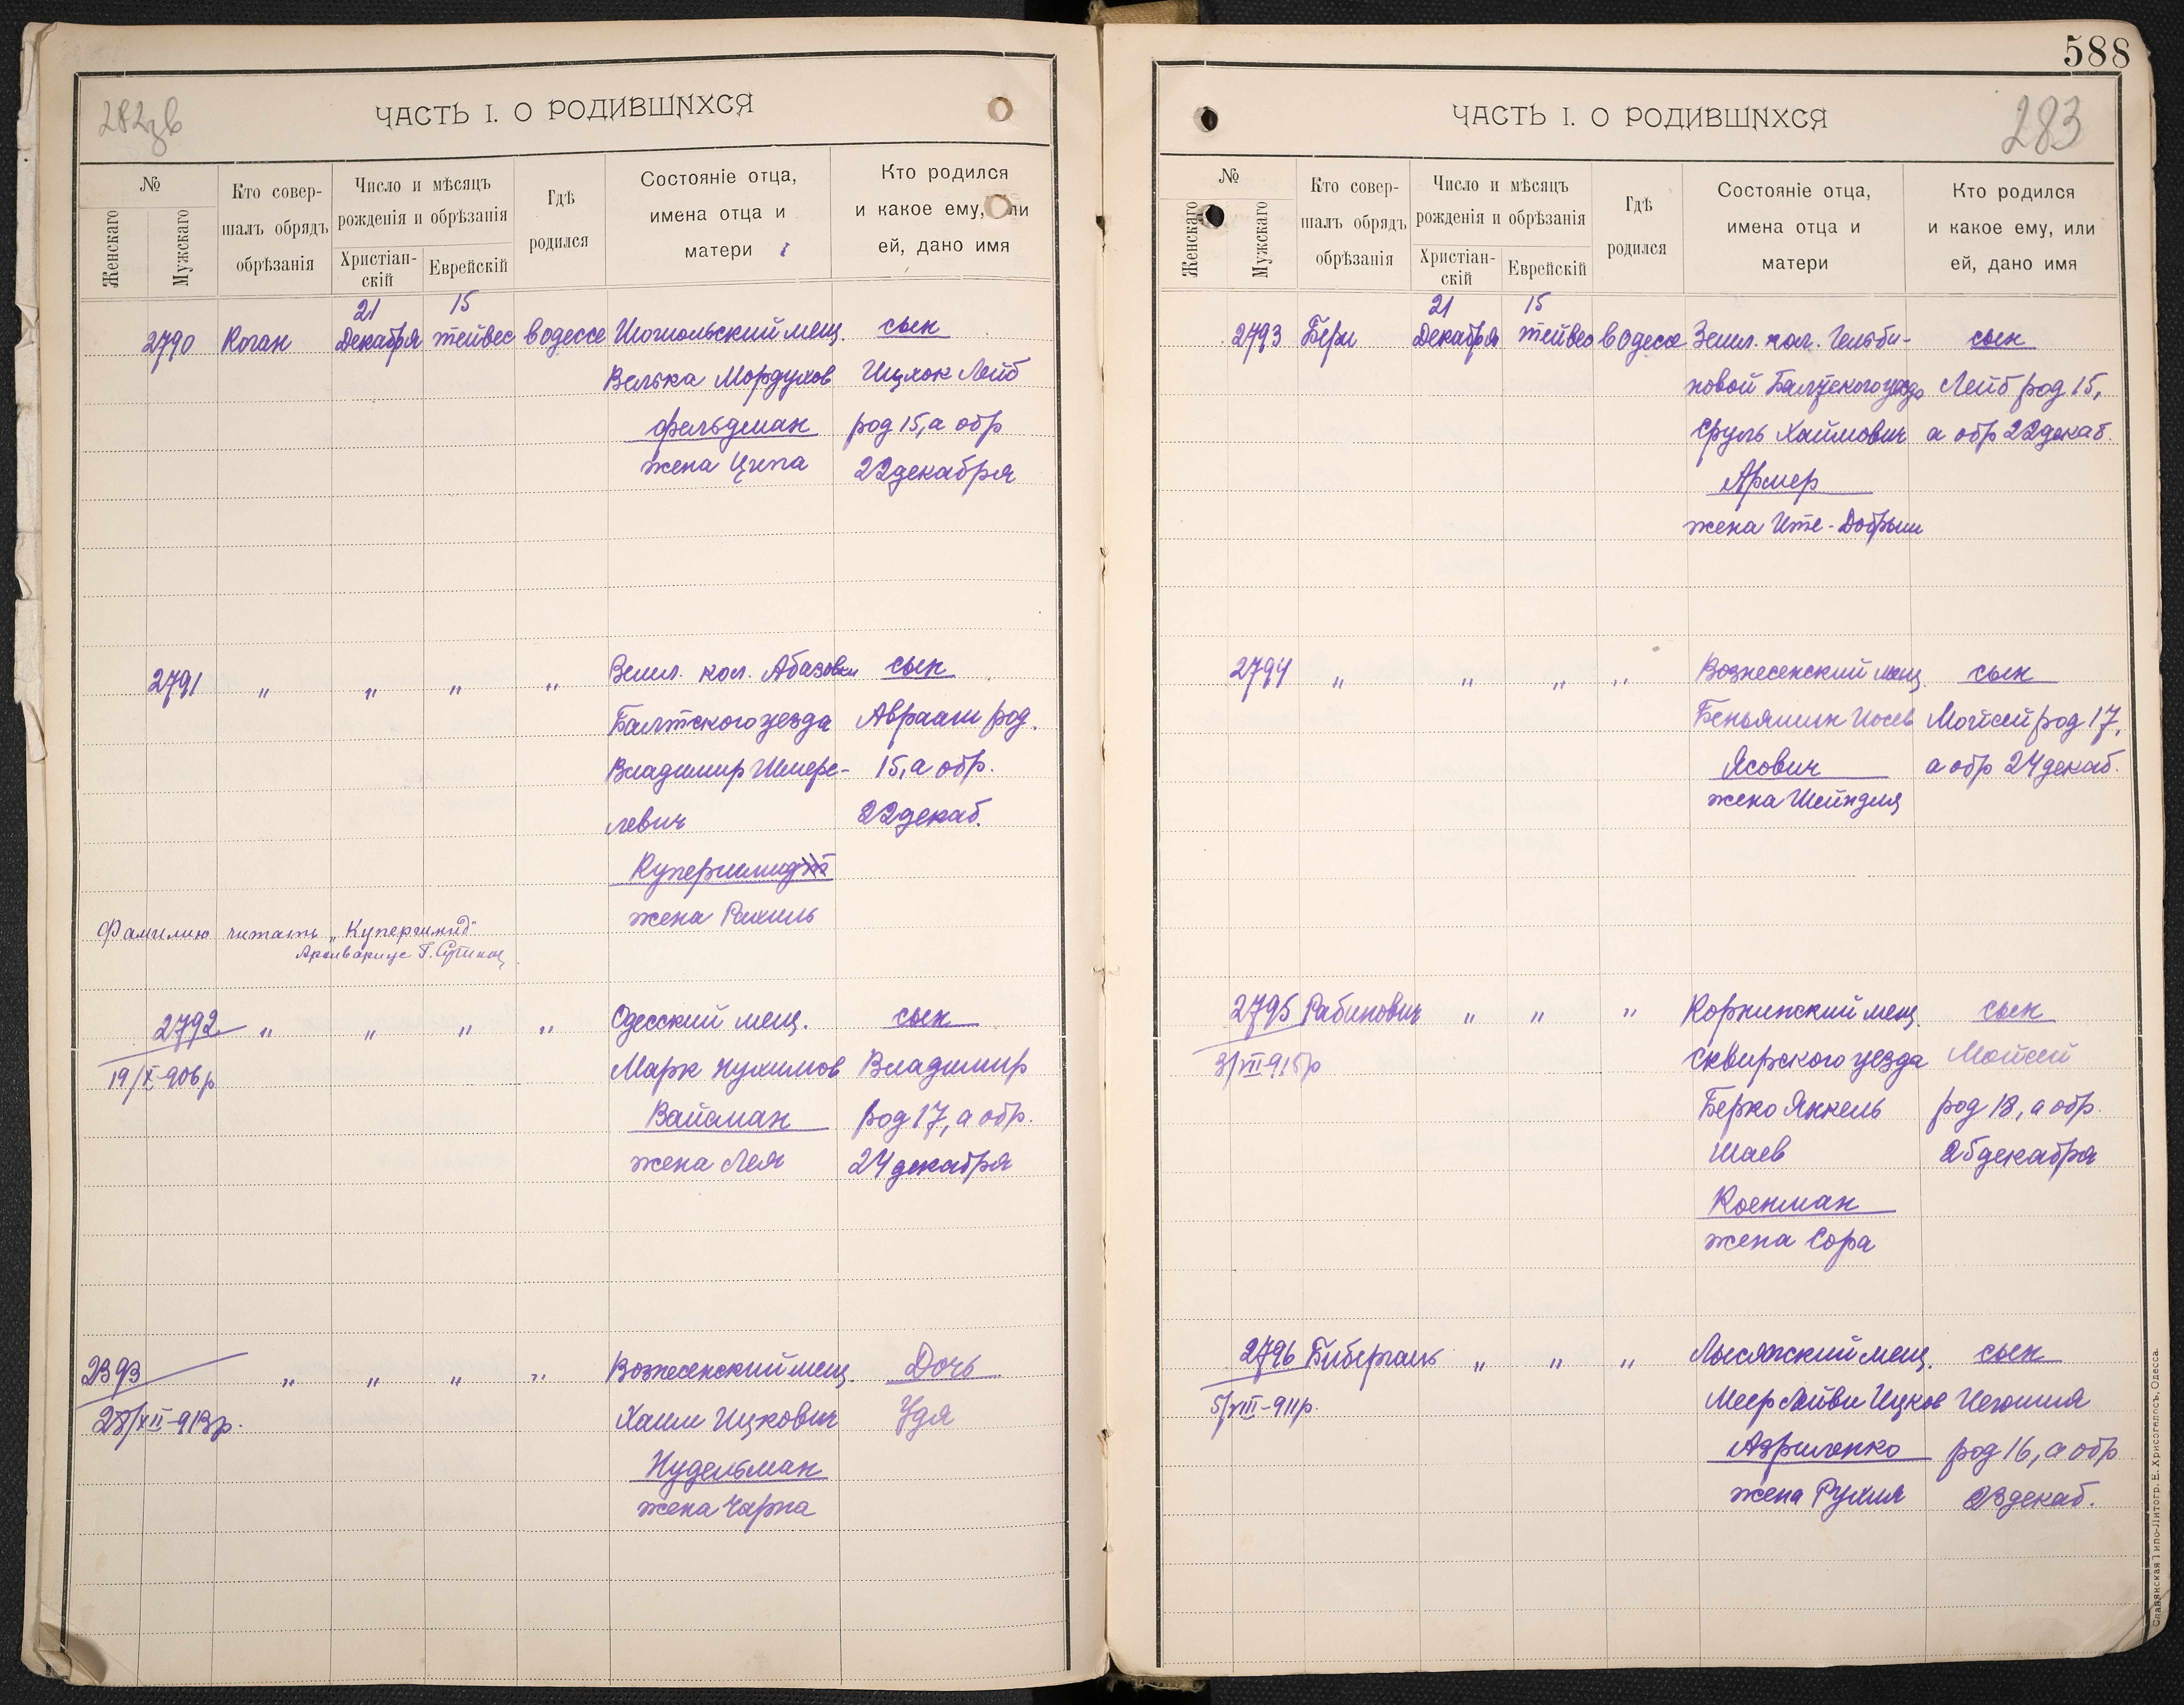 282зв
ЧАСТЬ I. О РОДИВШИХСЯ
№
Женскаго
Мужскаго
Кто совер-
шалъ обрядъ
обрѣзанія
Число и мѣсяцъ
рожденія и обрѣзанія
Христіан-
скій
Еврейскій
Гдѣ
родился
Состояніе отца,
имена отца и
матери
Кто родился
и какое ему, или
ей, дано имя
2790 Коган 21 Декабря 15 тейвес в Одессе
мещ.
Велька Мордухов
Фельдман
жена Ципа
сын
Ицхок Лейб
род 15, а обр
22 декабря
2791 " " " "
Земл. кол. Абазовки
Балтского уезда
Владимир Шмере-
левич
Купершмидт
жена Рахиль
сын
Авраам род.
15, а обр.
22 декаб.
Фамилию читать „Купершмид"
2792 " " " "
19/X-906 р
Одесский мещ.
Марк Нухимов
Вайсман
жена Лея
сын
Владимир
род 17, а обр.
24 декабря
2393 " " " "
28/XII-913 р.
Вознесенский мещ.
Хаим Ицкович
Нудельман
жена Чарна
Дочь
Удя
588
283
ЧАСТЬ I. О РОДИВШИХСЯ
№
Женскаго
Мужскаго
Кто совер-
шалъ обрядъ
обрѣзанія
Число и мѣсяцъ
рожденія и обрѣзанія
Христіан-
скій
Еврейскій
Гдѣ
родился
Состояніе отца,
имена отца и
матери
Кто родился
и какое ему, или
ей, дано имя
2793 Бери 21 Декабря 15 тейвес в Одессе
Земл. кол. Гельби-
новой Балтского уезда
Сруль Хаимович
жена Ите-Добрыш
сын
Лейб род 15,
а обр 22 декаб.
2794 " " " "
Вознесенский мещ.
Беньямин Иосев
Ясович
жена Шейндля
сын
Мойсей род 17,
а обр 24 декаб.
2795 Рабинович " " "
3/VII-915 р
Корнинский мещ.
Сквирского уезда
Берко Янкель
Шаев
Коенман
жена Сора
сын
Мойсей
род 18, а обр.
25 декабря
2796 Бибергаль " " "
5/VIII-911 р.
Лысянский мещ.
Меер Лейви Ицков
Азриленко
жена Рухля
сын
род 16, а обр
23 декаб.
Славянская Типо-Литогр. Е. Хрисогелосъ, Одесса.